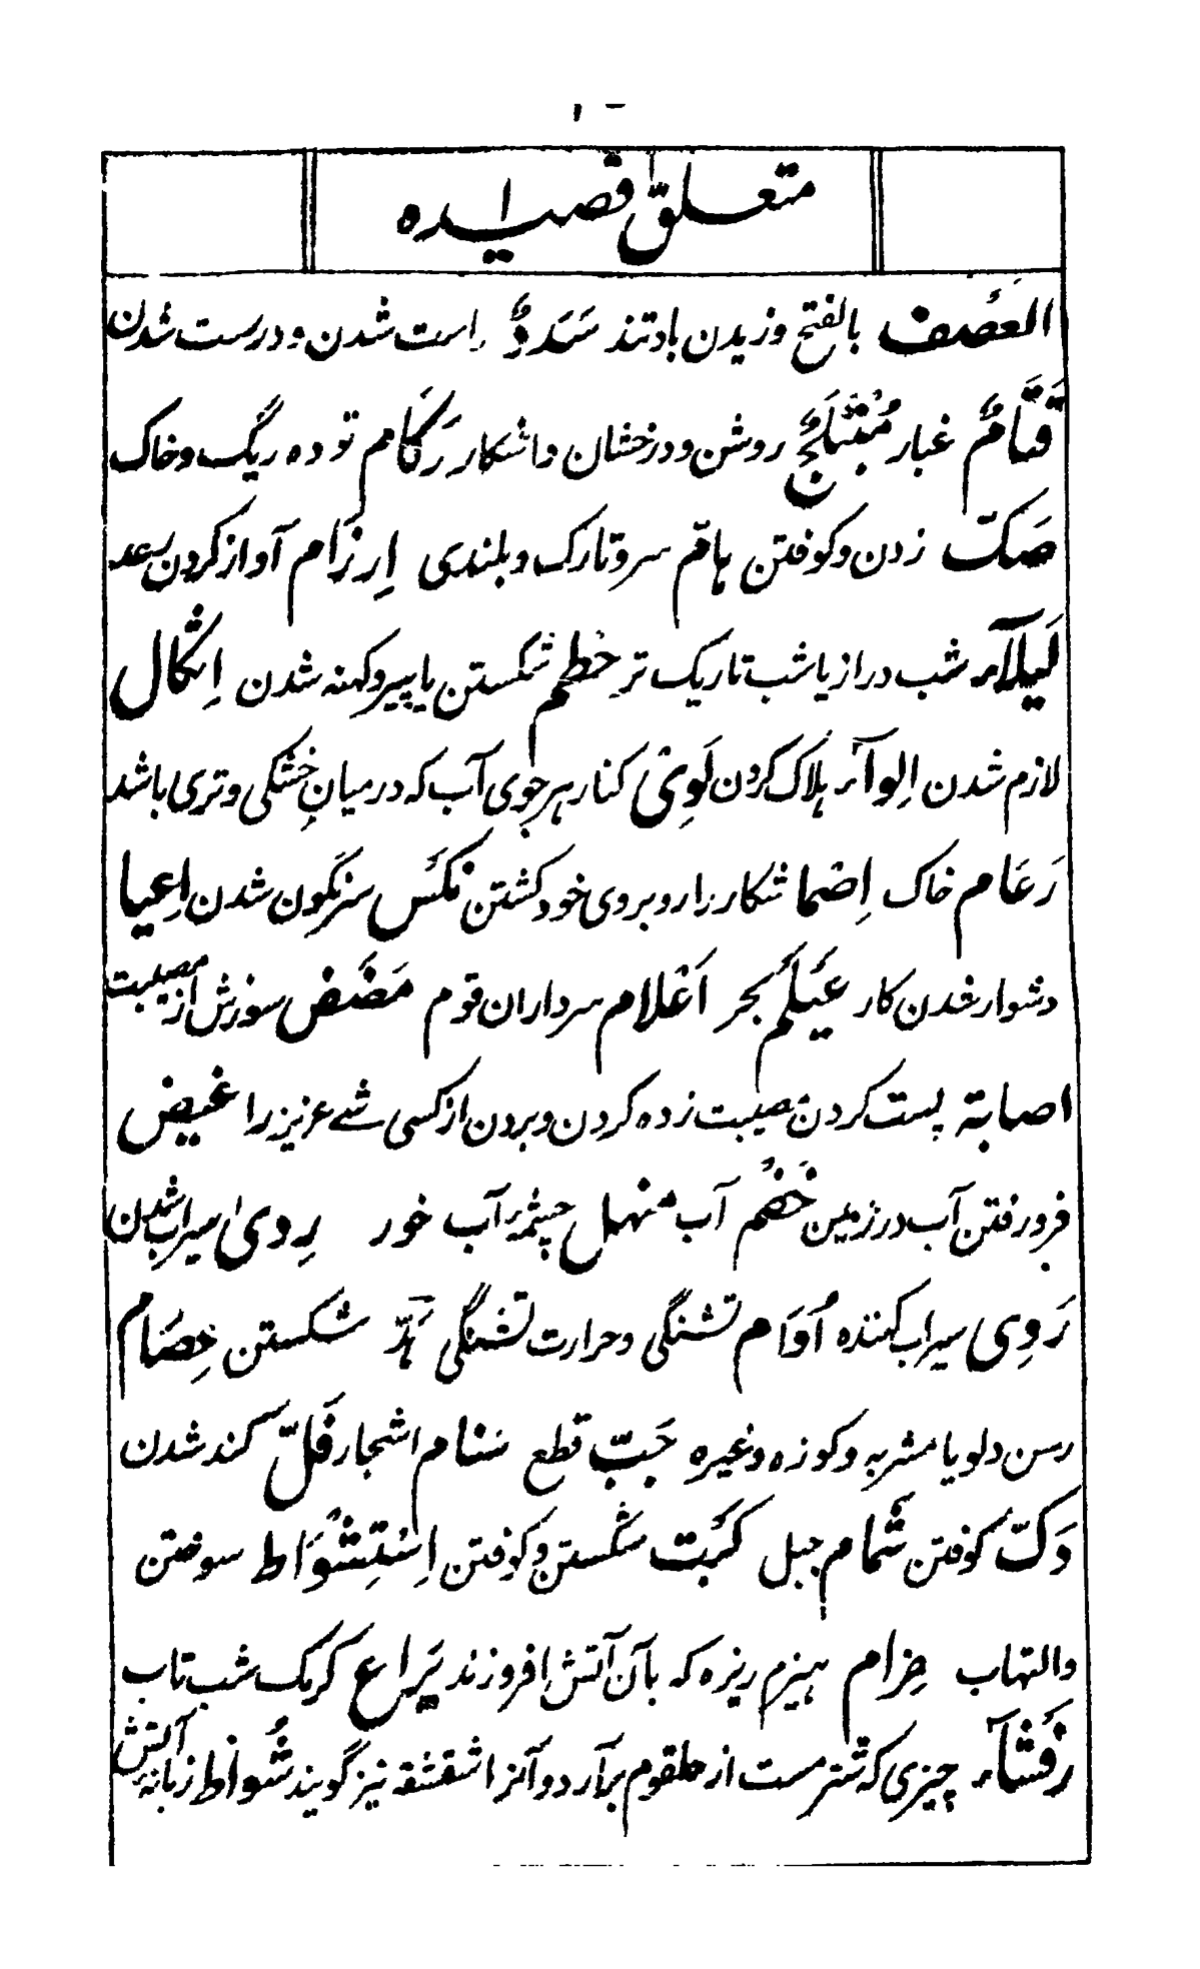 متعلق قصیده ا
العَصْف بالفتح وزیدن باد تند سَدَدٌ راست شدن و درست شدن
قَتَامٌ غبار مُبْتَلِجٌ روشن و درخشان و اشکار رَكَام توده ریگ و خاک
صَكّ زدن و کوفتن هام سر و تارک و بلندی اِرزَام آواز کردن رعد
لَیلَآء شب دراز یا شب تاریک تر حَطم شکستن یا پیر و کهنه شدن اِثکال
لازم شدن اِلوآء هلاک کردن لَوِیٰ کنار هر جوی آب که درمیان خشکی و تری باشد
رَغَام خاک اِصْما شکار را روبروی خود کشتن نَکس سرنگون شدن اِعیا
دشوار شدن کار عَیلَم بحر اَعْلام سرداران قوم مَضَض سوزش از مصیبت
اصابة پست کردن مصیبت زده کردن و بردن از کسی شے عزیز را غیض
فرو رفتن آب در زمین خَضَم آب منهل چشمۂ آب خور رِویٰ سیراب شدن
رَوِی سیراب کننده اُوَام تشنگی و حرارت تشنگی هَدّ شکستن خِصَام
رسن دلو یا مشربه و کوزه و غیره جَبّ قطع سنام اشجار فَلّ کند شدن
دَكّ کوفتن شَمام جبل كَبت شکستن و کوفتن اِسْتِشْوَاط سوختن
والتهاب ضِرام هیزم ریزه که بآن آتش افروزند یَراع کرمک شب تاب
رَقشآء چیزی که شتر مست از حلقوم برآرد و آنرا شقشقه نیز گویند شُواظ زبانۂ آتش